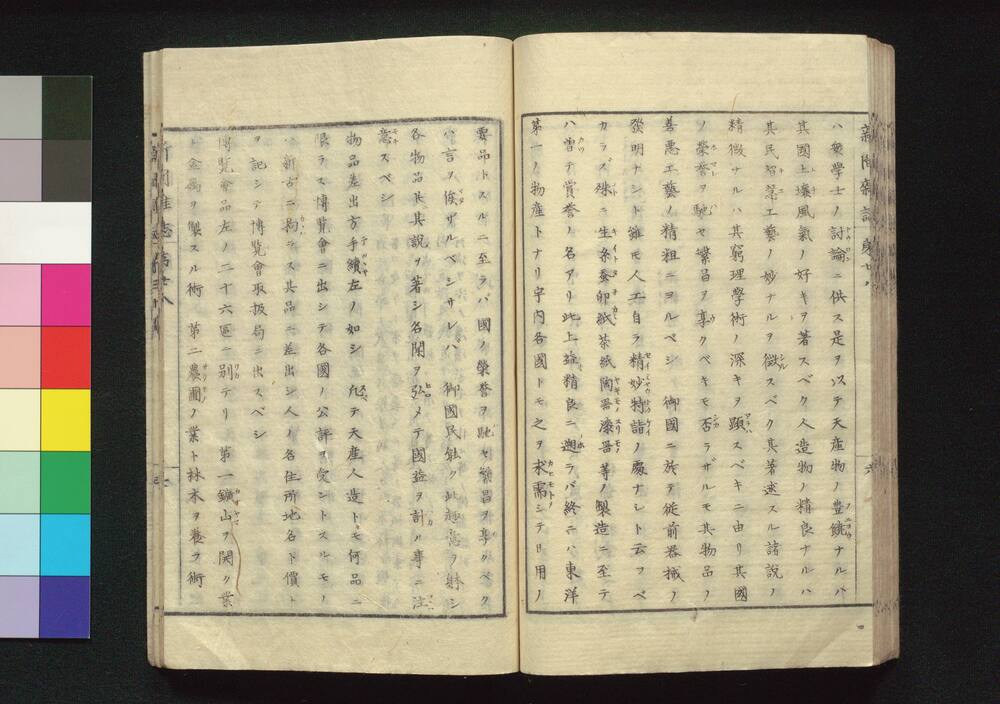 ハ衆學士ノ討論ニ供ス是ヲ以テ天産物ノ豊饒ナルハ
其國土壤風氣ノ好キヲ著スベク人造物ノ精良ナルハ
其民智ト工藝ノ妙ナルヲ徴スベク其著述スル諸説ノ
精微ナルハ其窮理學術ノ深キヲ顕スベキニ由リ其國
ノ榮誉ヲ馳セ繁昌ヲ享クベキモ否ラザルモ其物品ノ
善悪工藝ノ精粗ニヨルベシ 御國ニ於テ従前器械ノ
發明ナシト雖モ人工自ラ精妙特詣ノ處ナシト云フベ
カラズ殊ニ生糸蚕卵紙茶紙陶器漆器等ノ製造ニ至テ
ハ曽テ賞誉ノ名アリ此上益精良ニ遡ラバ終ニハ東洋
第一ノ物産トナリ宇内各國トモ之ヲ求需シテ日用ノ
要品トスルニ至ラバ國ノ榮誉ヲ馳セ繁昌ヲ享クベク
ハ言ヲ俟ザルベシサレハ 御國民能ク此趣意ヲ躰シ
各物品並其説ヲ著シ名聞ヲ弘メテ國益ヲ計ル事ニ注
意スベシ
物品差出方手續左ノ如シ 凡テ天産人造トモ何品ニ
限ラス博覧會ニ出シテ各國ノ公評ヲ受ントスルモノ
ハ新古ニ拘ラス其品ニ差出シ人ノ名住所地名ト價ト
ヲ記シテ博覧會取扱局ニ出スベシ
博覧會品左ノ二十六區ニ別テリ 第一鑛山ヲ開ク業
ト金属ヲ製スル術 第二農圃ノ業ト林木ヲ養フ術